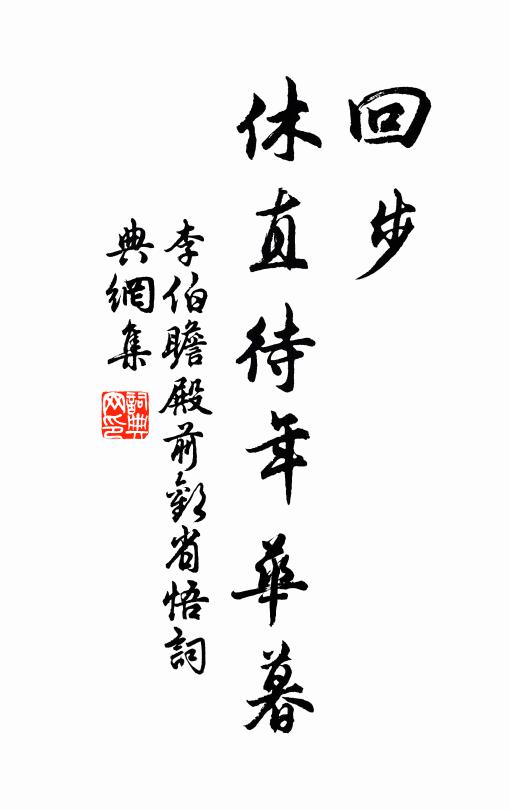 回步
休直待年華暮
李伯瞻殿前歡省悟詞
典網集
詞典
网印